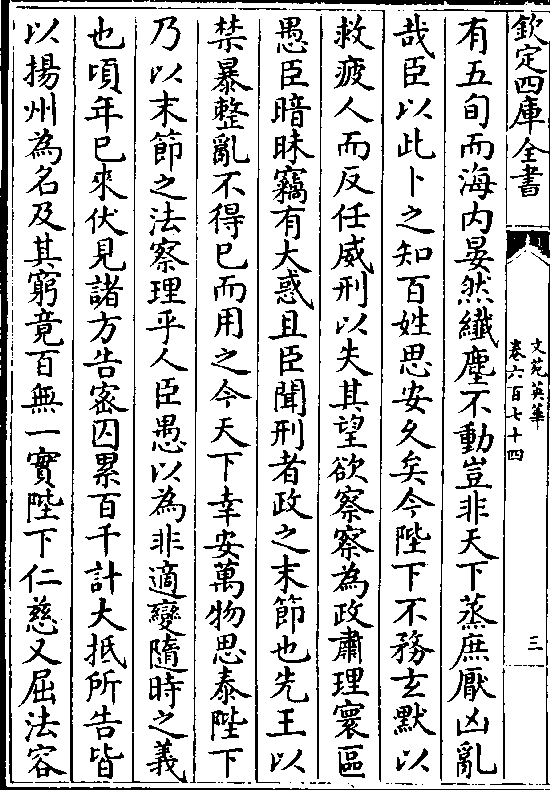 欽定四庫全書
文苑英華
卷六百七十四
三
有五旬而海内晏然纎塵不動豈非天下蒸庶厭凶亂
哉臣以此卜之知百姓思安久矣今陛下不務玄黙以
救疲人而反任威刑以失其望欲察察為政肅理寰區
愚臣暗昧竊有大惑且臣聞刑者政之末節也先王以
禁暴整亂不得已而用之今天下幸安萬物思泰陛下
乃以末節之法察理乎人臣愚以為非適變隨時之義
也頃年已來伏見諸方告宻囚累百千計大抵所告皆
以揚州為名及其窮竟百無一實陛下仁慈又屈法容